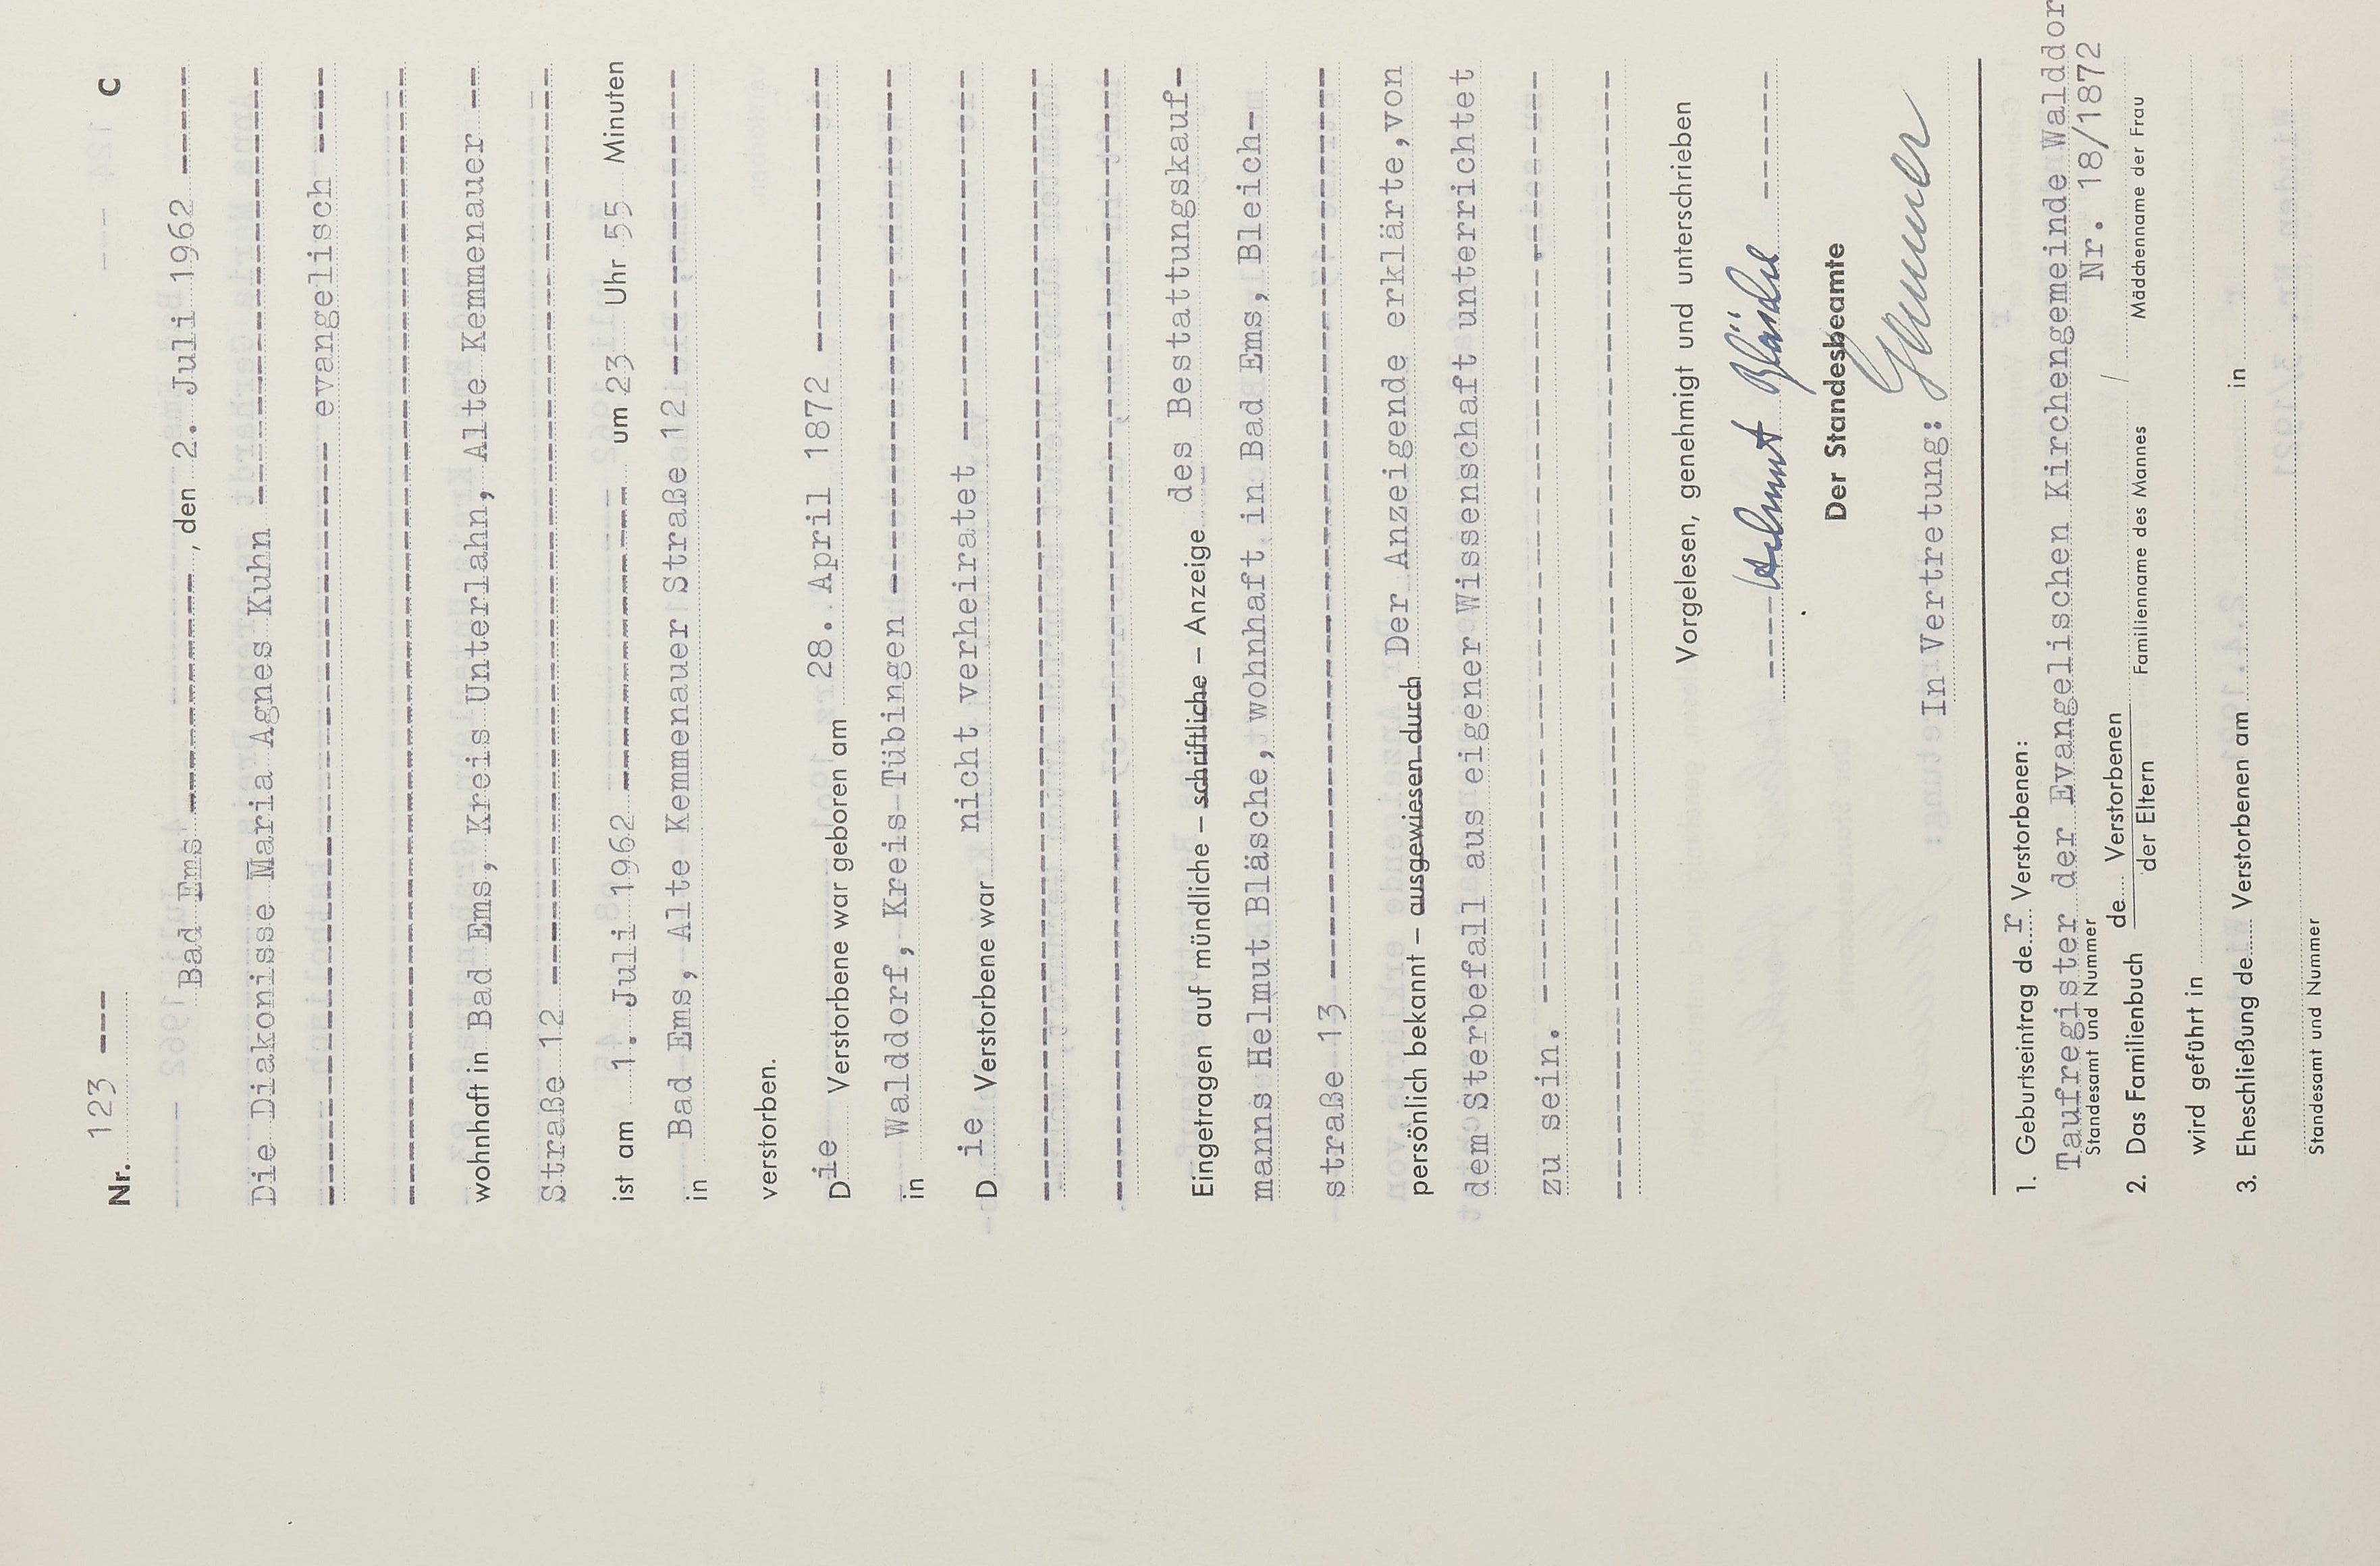 Nr. 123 --- C
Bad Ems ----------, den 2. Juli 1962 -----
Die Diakonisse Maria Agnes Kuhn -----
----- evangelisch -----
-----
wohnhaft in Bad Ems, Kreis Unterlahn, Alte Kemmenauer --
Straße 12 -----
ist am 1. Juli 1962 ----- um 23 Uhr 55 Minuten
in Bad Ems, Alte Kemmenauer Straße 12 -----
verstorben.
Die Verstorbene war geboren am 28. April 1872 -----
in Walddorf, Kreis Tübingen -----
Die Verstorbene war nicht verheiratet -----
-----
-----
Eingetragen auf mündliche – schriftliche – Anzeige des Bestattungskauf-
manns Helmut Bläsche, wohnhaft in Bad Ems, Bleich-
straße 13 -----
persönlich bekannt – ausgewiesen durch Der Anzeigende erklärte, von
dem Sterbefall aus eigener Wissenschaft unterrichtet
zu sein. -----
-----
Vorgelesen, genehmigt und unterschrieben
----- Helmut Bläsche -----
Der Standesbeamte
In Vertretung:
1. Geburtseintrag der Verstorbenen:
Taufregister der Evangelischen Kirchengemeinde Walddor
Standesamt und Nummer Nr. 18/1872
2. Das Familienbuch de... Verstorbenen / der Eltern Familienname des Mannes / Mädchenname der Frau
wird geführt in
3. Eheschließung de... Verstorbenen am in
Standesamt und Nummer